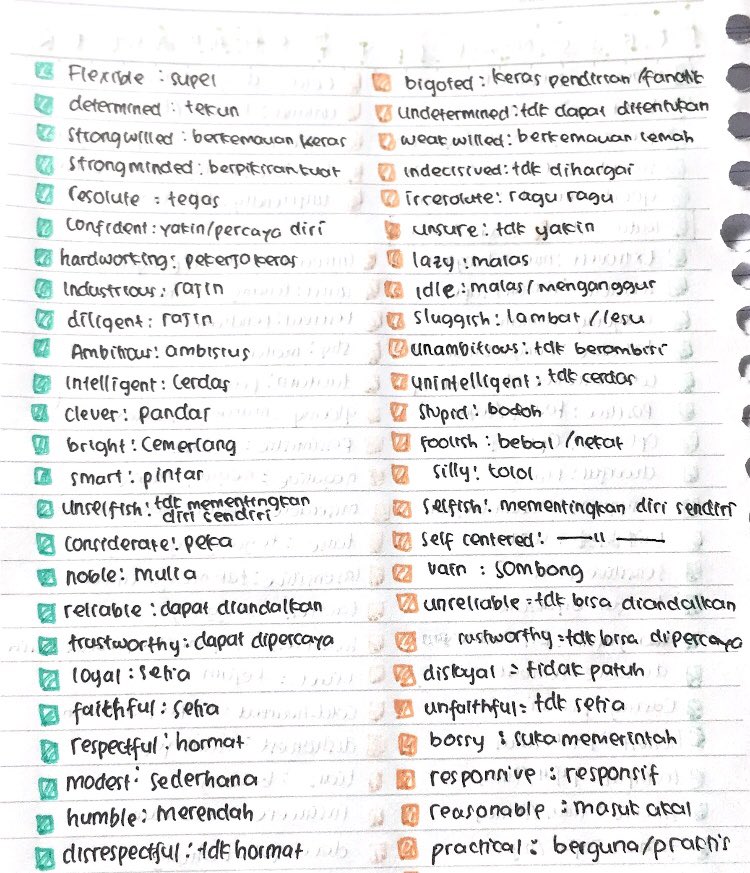 Flexible : supel
determined : tekun
strong willed : berkemauan keras
strong minded : berpikiran kuat
resolute : tegas
confident : yakin/percaya diri
hardworking : pekerja keras
Industrious : rajin
diligent : rajin
Ambitious : ambisius
Intelligent : Cerdas
clever : pandai
bright : Cemerlang
smart : pintar
unselfish : tdk mementingkan
diri sendiri
considerate : peka
noble : mulia
reliable : dapat diandalkan
trustworthy : dapat dipercaya
loyal : setia
faithful : setia
respectful : hormat
modest : sederhana
humble : merendah
disrespectful : tdk hormat
bigoted : keras pendirian /fanatik
undetermined : tdk dapat ditentukan
weak willed : berkemauan lemah
indecisived : tdk dihargai
irresolute : ragu ragu
unsure : tdk yakin
lazy : malas
idle : malas/menganggur
sluggish : lambat /lesu
unambitious : tdk berambisi
unintelligent : tdk cerdas
stupid : bodoh
foolish : bebal /nekat
silly : tolol
selfish : mementingkan diri sendiri
self centered : —— 〃 ——
vain : sombong
unreliable = tdk bisa diandalkan
rustworthy = tdk bisa dipercaya
disloyal = tidak patuh
unfaithful = tdk setia
bossy : suka memerintah
responsive : responsif
reasonable : masuk akal
practical : berguna/praktis